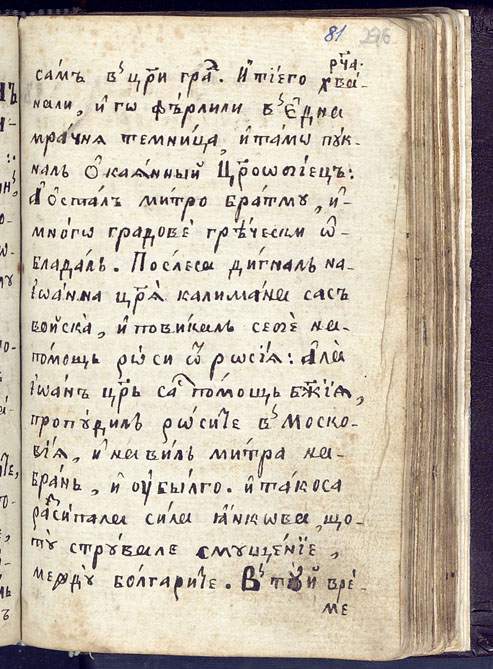 81 296
рч҃а.
самъ в᾽ цр҃и гра̑. И тїего хва́-
нали, и го фѣрлили в᾽ Една
мрачня темница, и тамѡ пук-
налъ Ѻкаянный Цр҃оѡтїецъ:
А ѡсталъ митро братму, и
много градове грѣчески ѡ-
бладалъ. После са дигналъ на
іѡанна цр҃я калимана сасъ
войска, и повикалъ себѣ на
помощь рѡси ѿ рѡсїя: Ала
іѡанъ цр҃ь са помощь бж҃їя,
пропудилъ рѡситѣ в᾽ Моско-
вїя, и навилъ митра на
брань, и оубылго. и такоса
расипала сила янкова, що-
ту струвале смущенїе,
между болгаритѣ. В᾽ той вре-
ме